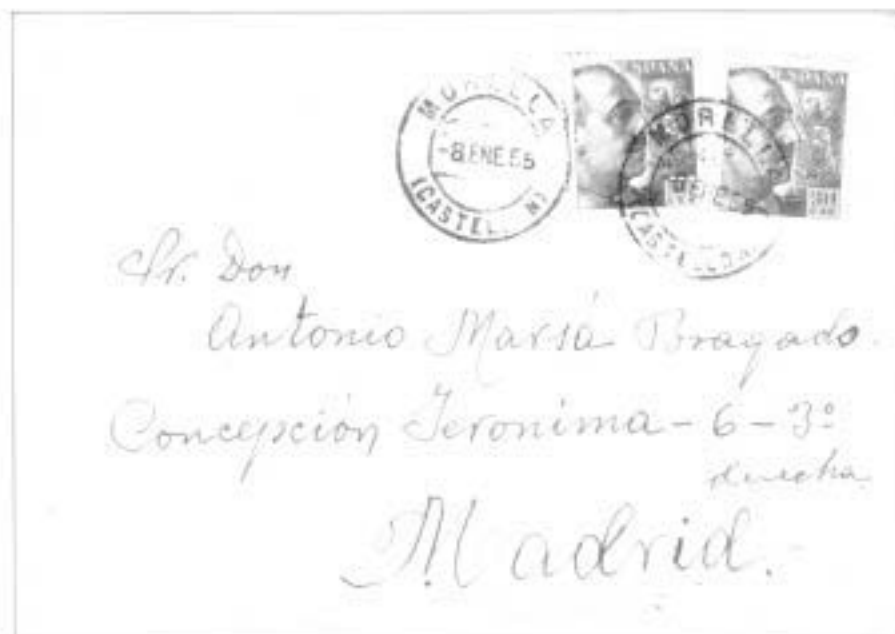 MORELLA
-8.ENE.55
(CASTEL N)
ESPAÑA
ESPAÑA
MORELLA
(CASTELLON)
Sr. Don
Antonio Marsá Bragado.
Concepción Jeronima - 6 - 3º
derecha
Madrid.